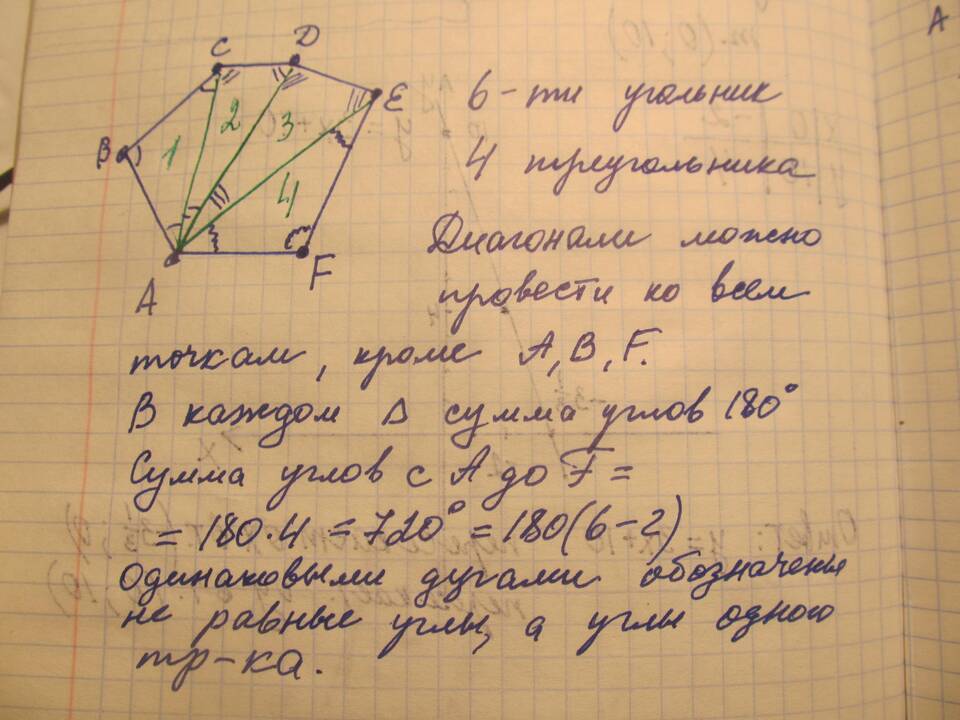 C D
B E
1 2 3 4
A F
6-ти угольник
4 треугольника
Диагонали можно
провести ко всем
точкам, кроме A, B, F.
В каждом Δ сумма углов 180°
Сумма углов с A до F =
= 180·4 = 720° = 180(6-2)
Одинаковыми дугами обозначены
не равные углы, а углы одного
тр-ка.
A